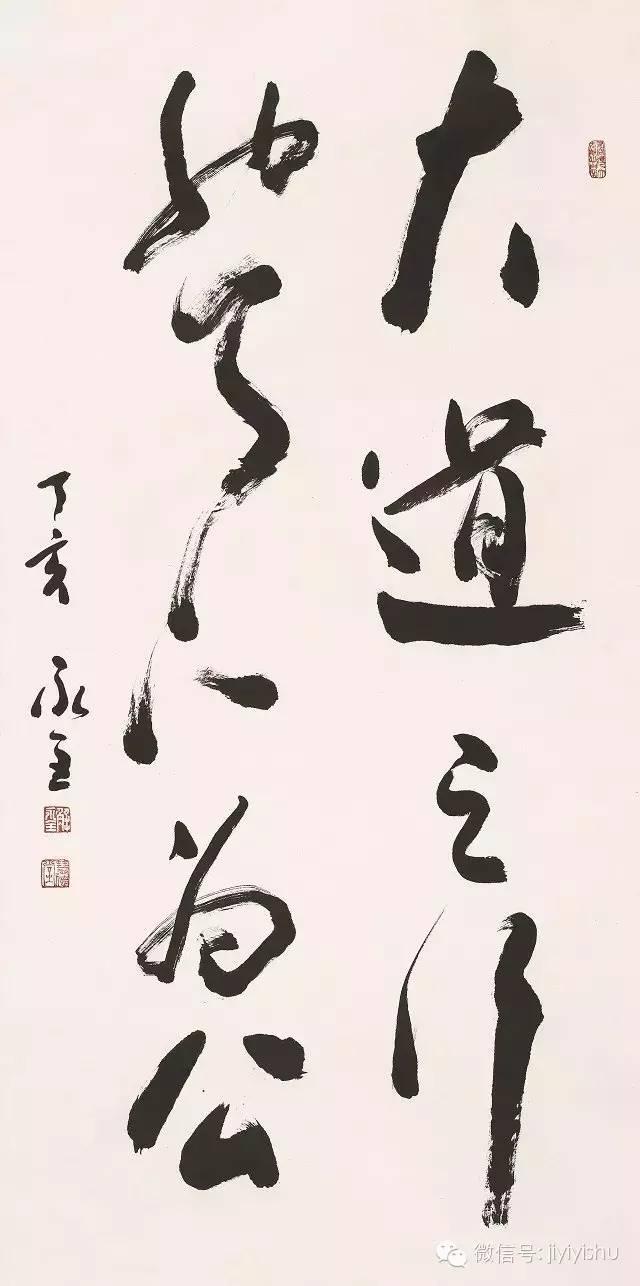 大道之行
也天下为公
丁亥 永全
微信号: jiyiyishu